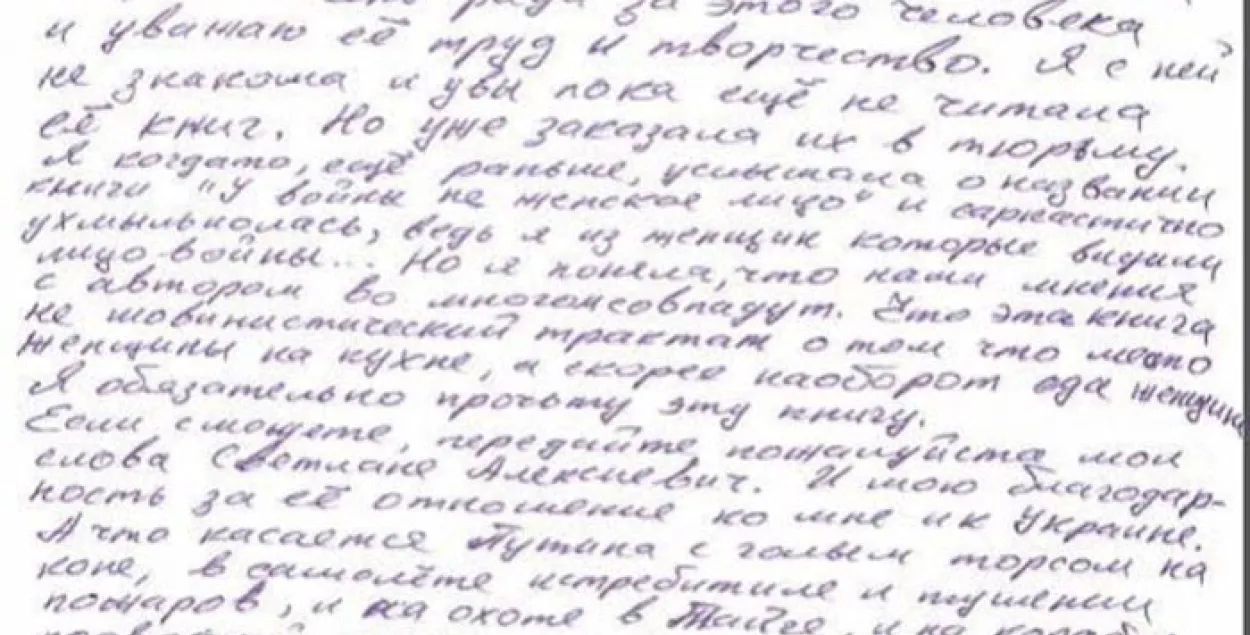 рада за этого человека
и уважаю её труд и творчество. Я с ней
не знакома и увы пока ещё не читала
её книг. Но уже заказала их в тюрьму.
Я когдато, ещё раньше, услышала о названии
книги "У войны не женское лицо" и саркастично
ухмыльнолась, ведь я из женщин которые видили
лицо войны... Но я поняла, что наши мнения
с автором во многомсовпадут. Что эта книга
не шовинистический трактат о том что место
женщины на кухне, а скорее наоборот ода женщине
Я обязательно прочьту эту книгу.
Если сможете, передайте пожалуйста мои
слова Светлане Алексиевич. И мою благодар-
ность за её отношение ко мне и к Украине.
А что касается Путина с голым торсом на
коне, в самолёте истребителе и тушении
пожаров, и на охоте в Тайге, и на